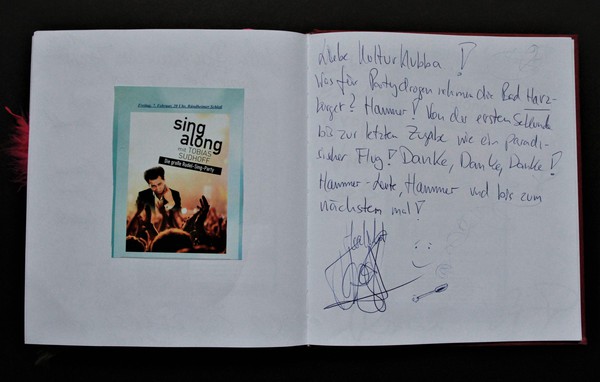 Freitag, 7. Februar, 20 Uhr, Bündheimer Schloß
sing
along
mit TOBIAS
SUDHOFF
Die große Rudel-Sing-Party
Liebe KulturKlubba !
Was für Partydrogen nehmen die Bad Harz-
burger? Hammer! Von der ersten Sekunde
bis zur letzten Zugabe wie ein paradi-
sischer Flug! Danke, Danke, Danke!
Hammer-Leute, Hammer und bis zum
nächsten mal!